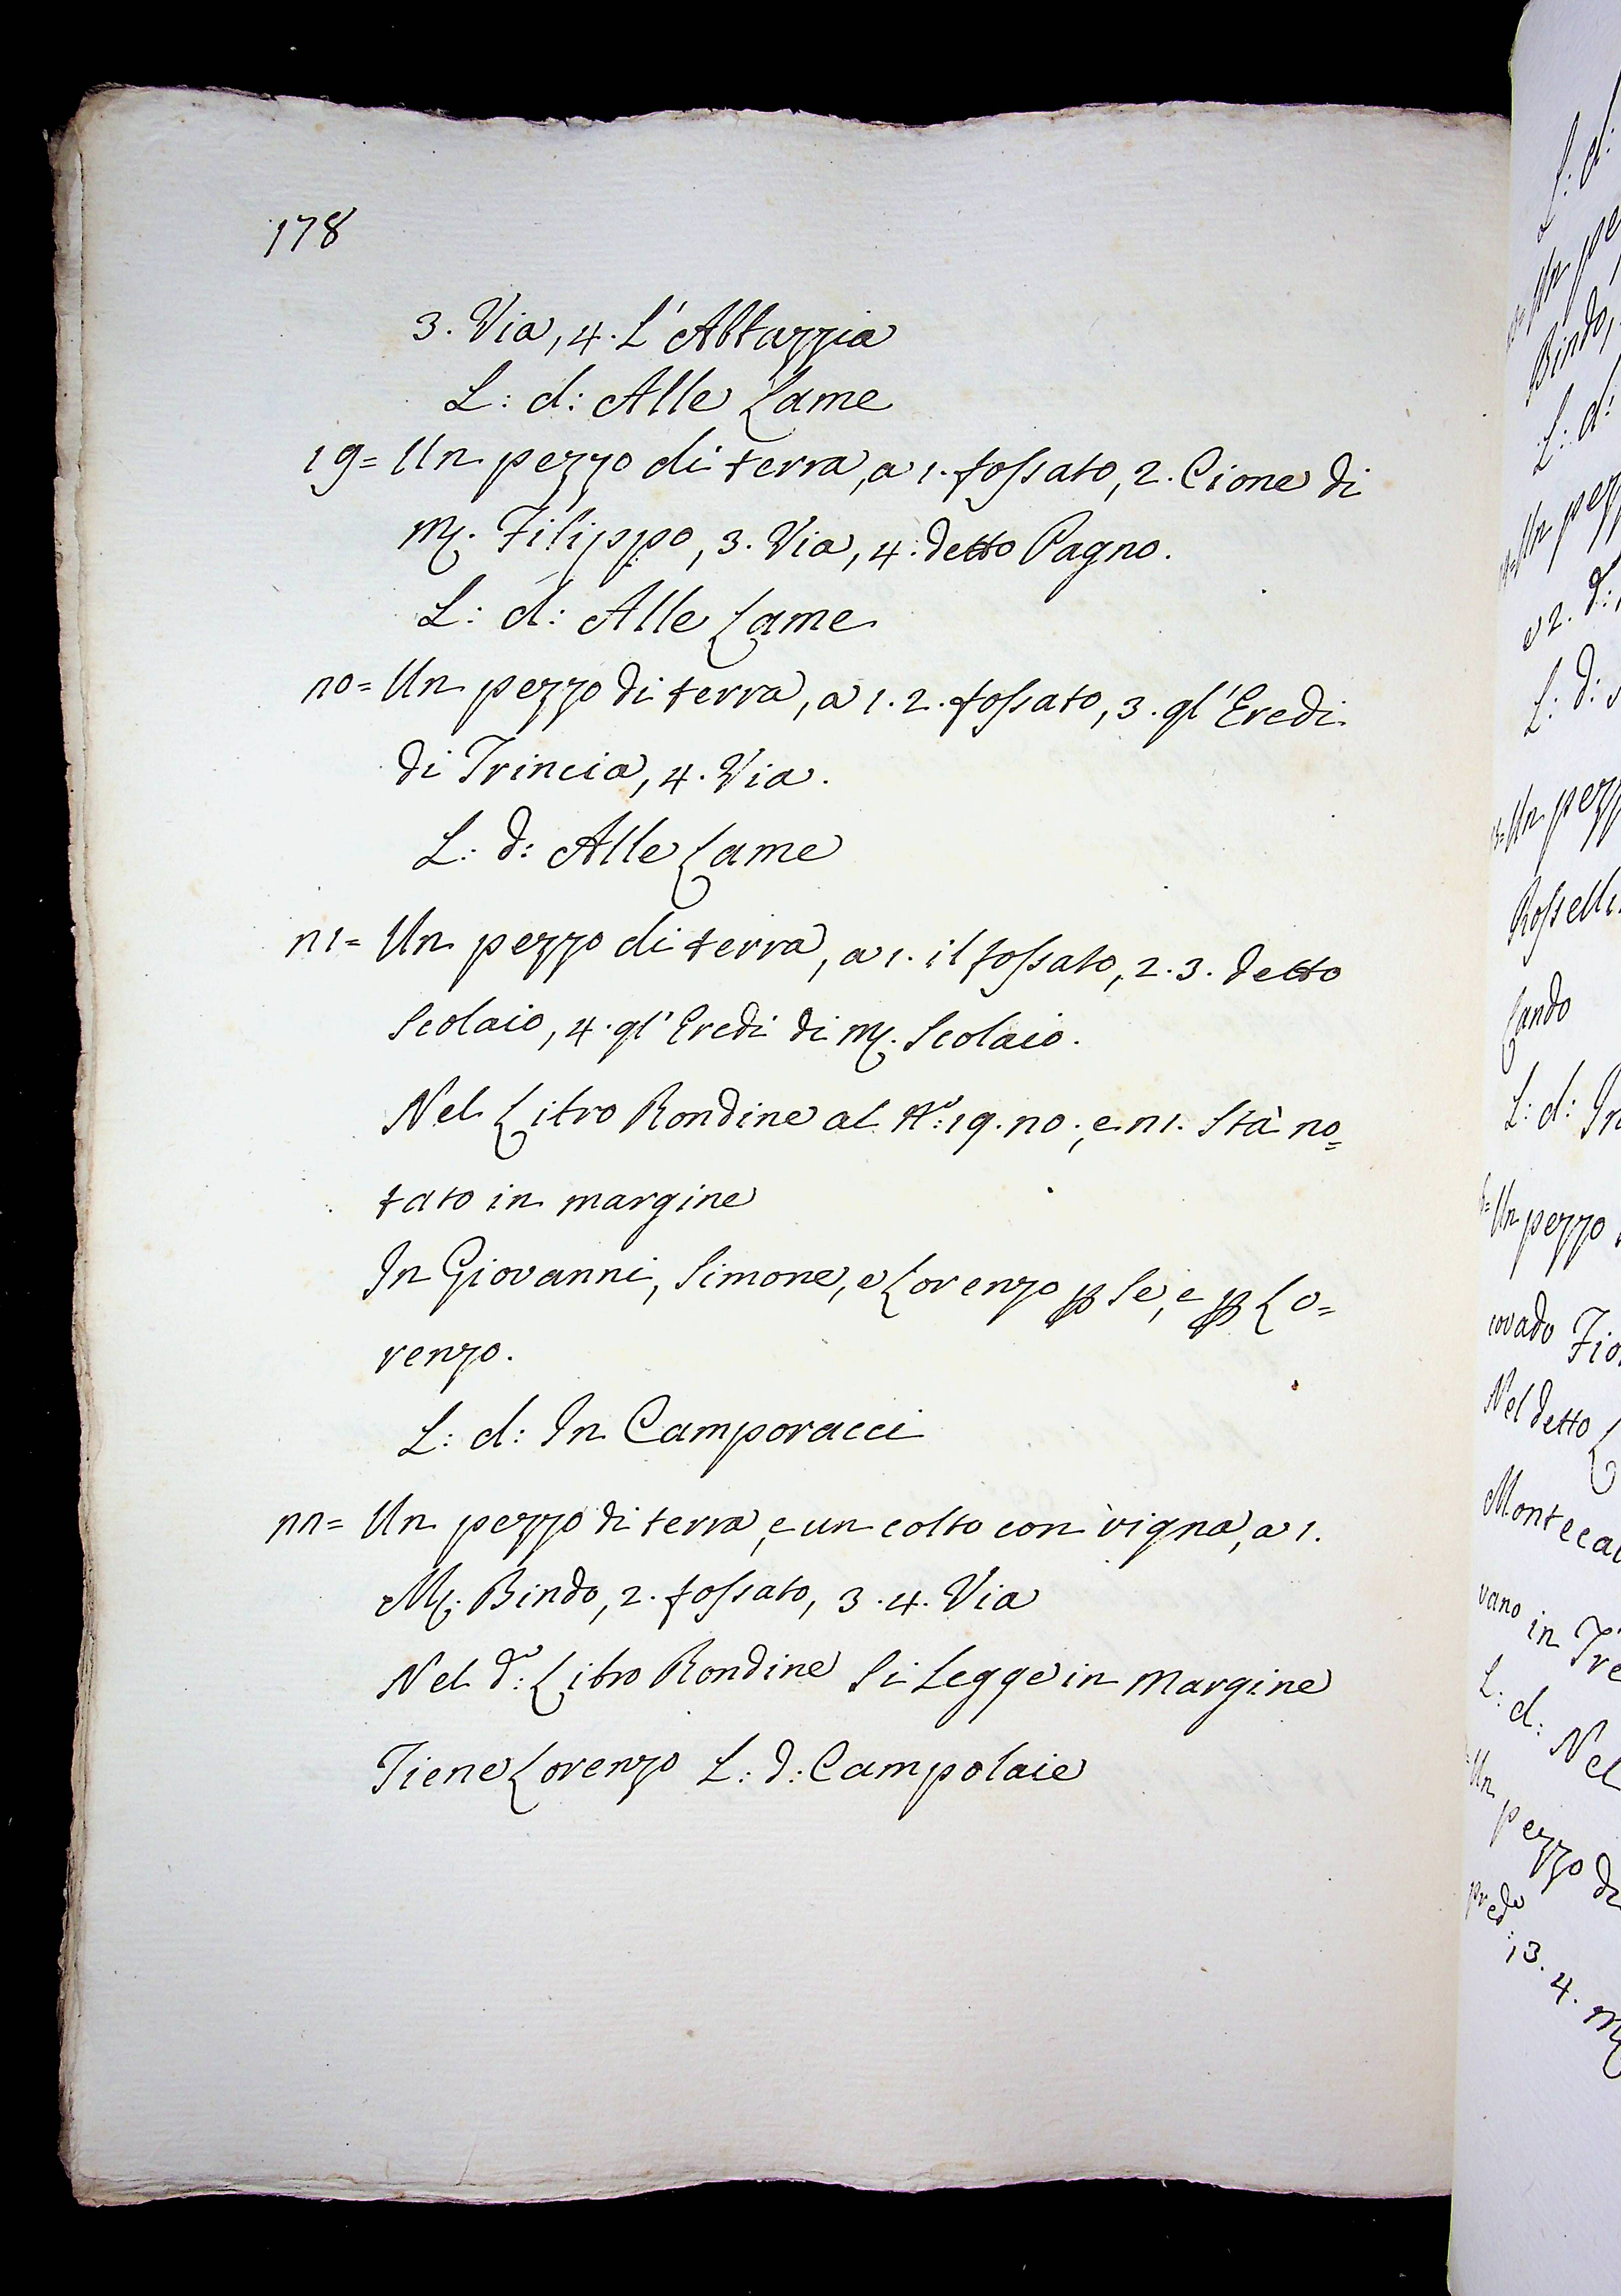 178
3. Via, 4. L'Abbazzia
L: d: Alle Lame
19= Un pezzo di terra, a 1. fossato, 2. Cione di
M. Filippo, 3. Via, 4. detto Pagno.
L: d: Alle Lame
20= Un pezzo di terra, a 1. 2. fossato, 3. gl'Eredi
di Trincia, 4. Via.
L: d: Alle Lame
21= Un pezzo di terra, a 1. il fossato, 2. 3. detto
Scolaio, 4. gl'Eredi di M. Scolaio.
Nel Libro Rondine al N.º: 19. 20., e 21. Stà no=
tato in margine
In Giovanni, Simone, e Lorenzo p Se, e p Lo=
renzo.
L: d: In Camporacci
22= Un pezzo di terra, e un colto con vigna, a 1.
M. Bindo, 2. fossato, 3. 4. Via
Nel d.º: Libro Rondine Si Legge in Margine
Tiene Lorenzo L: d: Campolaie
L: d:
Un pe
Bindo,
L: d:
Un pezz
e 2. d:
L: d:
Un pezz
Rosselli
Lando
L: d: In
Un pezzo
covado Fio
Nel detto L
Monteca
vano in Tre
L: d: Nel
Un pezzo di
13. 4. M